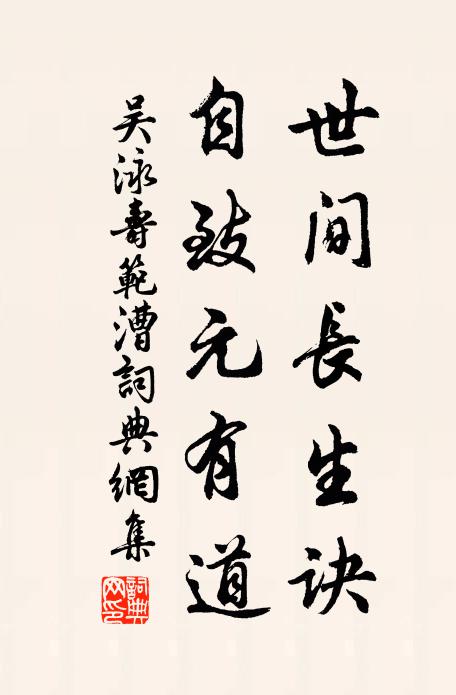 世間長生訣
自致元有道
吳泳壽範漕詞典網集
詞典
网印